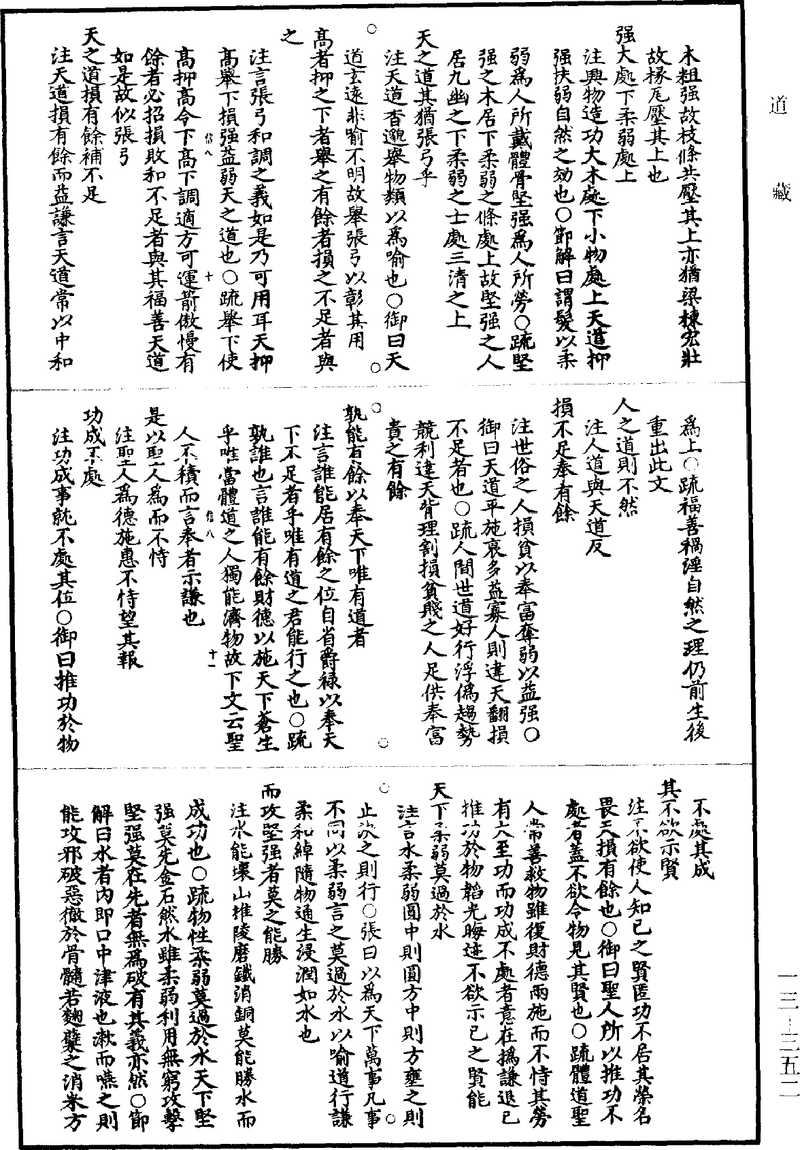 道藏
木粗强故枝條共壓其上亦猶梁棟宏壯
故椽瓦壓其上也
强大處下柔弱處上
注興物造功大木處下小物處上天道抑
强扶弱自然之効也○節解曰謂髮以柔
弱爲人所戴體骨堅强爲人所勞○疏堅
强之木居下柔弱之條處上故堅强之人
居九幽之下柔弱之士處三清之上
天之道其猶張弓乎
注天道杳邈舉物類以爲喻也○御曰天
道玄遠非喻不明故舉張弓以彰其用
高者抑之下者舉之有餘者損之不足者與
之
注言張弓和調之義如是乃可用耳天抑
高舉下損强益弱天之道也○疏舉下使
高抑高令下高下調適方可運箭傲慢有
餘者必招損敗和不足者與其福善天道
如是故似張弓
天之道損有餘補不足
注天道損有餘而益謙言天道常以中和
爲上○疏福善禍淫自然之理仍前生後
重出此文
人之道則不然
注人道與天道反
損不足奉有餘
注世俗之人損貧以奉富奪弱以益强○
御曰天道平施裒多益寡人則違天翻損
不足者也○疏人間世道好行浮僞趨勢
競利違天背理割損貧賤之人足供奉富
貴之有餘
孰能有餘以奉天下唯有道者
注言誰能居有餘之位自省爵祿以奉天
下不足者乎唯有道之君能行之也○疏
孰誰也言誰能有餘財德以施天下蒼生
乎唯當體道之人獨能濟物故下文云聖
人不積而言奉者示謙也
是以聖人爲而不恃
注聖人爲德施惠不恃望其報
功成不處
注功成事就不處其位○御曰推功於物
不處其成
其不欲示賢
注不欲使人知已之賢匿功不居其榮名
畏天損有餘也○御曰聖人所以推功不
處者蓋不欲令物見其賢也○疏體道聖
人常善救物雖復財德兩施而不恃其勞
有大至功而功成不處者意在撝謙退已
推功於物韜光晦迹不欲示已之賢能
天下柔弱莫過於水
注言水柔弱圓中則圓方中則方壅之則
止決之則行○張曰以爲天下萬事凡事
不同以柔弱言之莫過於水以喻道行謙
柔和綽隨物通生浸潤如水也
而攻堅强者莫之能勝
注水能壞山摧陵磨鐵消銅莫能勝水而
成功也○疏物性柔弱莫過於水天下堅
强莫先金石然水雖柔弱利用無窮攻擊
堅强莫在先者無爲破有其義亦然○節
解曰水者内即口中津液也漱而嚥之則
能攻邪破惡徹於骨髓若麴糵之消米方
信八
十
信八
十一
一三—三五二